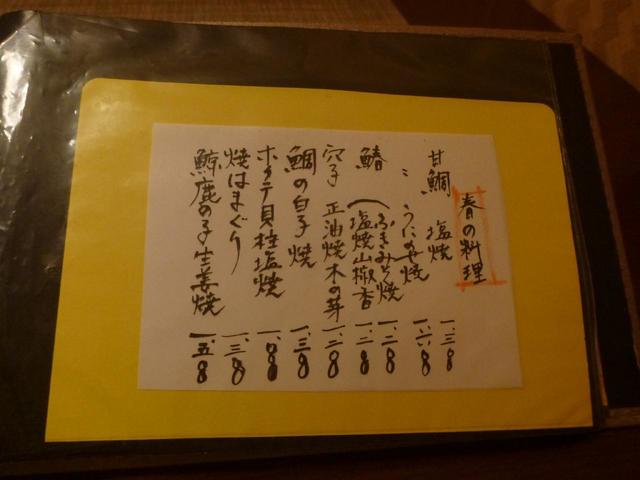 春の料理
甘鯛 塩焼 一、三〇〇
〃 うにのせ焼 一、六〇〇
鰆 ふきみそ焼 一、二〇〇
塩焼山椒香 一、二〇〇
穴子 正油焼木の芽 一、二〇〇
鯛の白子 焼 一、三〇〇
ホタテ貝柱塩焼
焼はまぐり 一、三〇〇
鯨鹿の子生姜焼 一、五〇〇